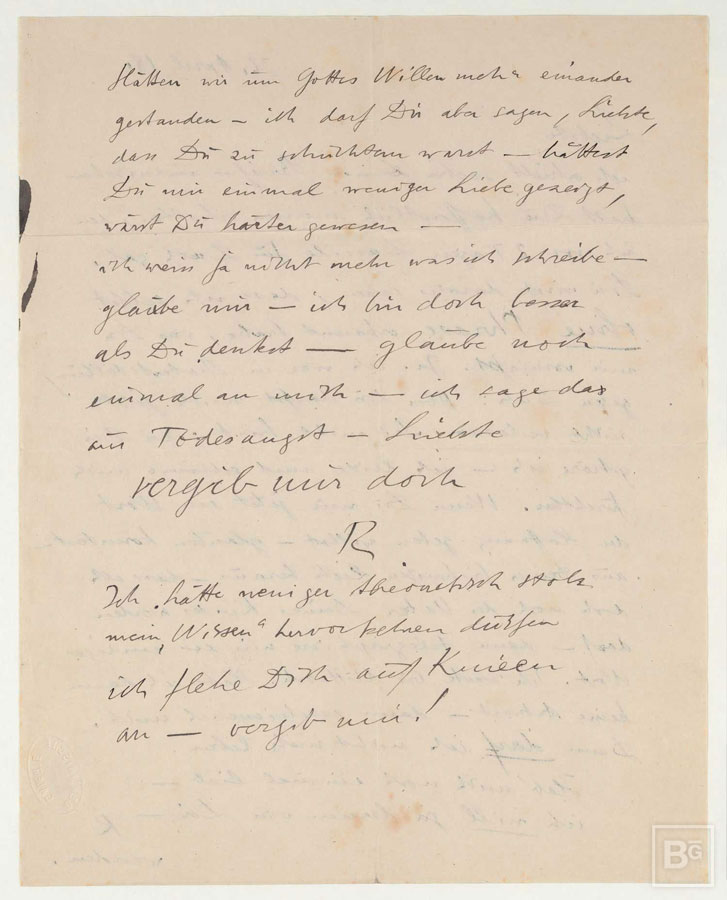 Hätten wir um Gottes Willen mehr einander
gestanden – ich darf Dir aber sagen, Liebste,
dass Du zu schüchtern warst – hättest
Du mir einmal weniger Liebe gezeigt,
wärst Du härter gewesen –
ich weiss ja nicht mehr was ich schreibe –
glaube mir – ich bin doch besser
als Du denkst – glaube noch
einmal an mich – ich sage das
in Todesangst – Liebste
vergib mir doch
R
Ich hätte weniger theoretisch stolz
mein „Wissen“ hervorkehren dürfen
ich flehe Dich auf Knieen
an – vergib mir!
BG